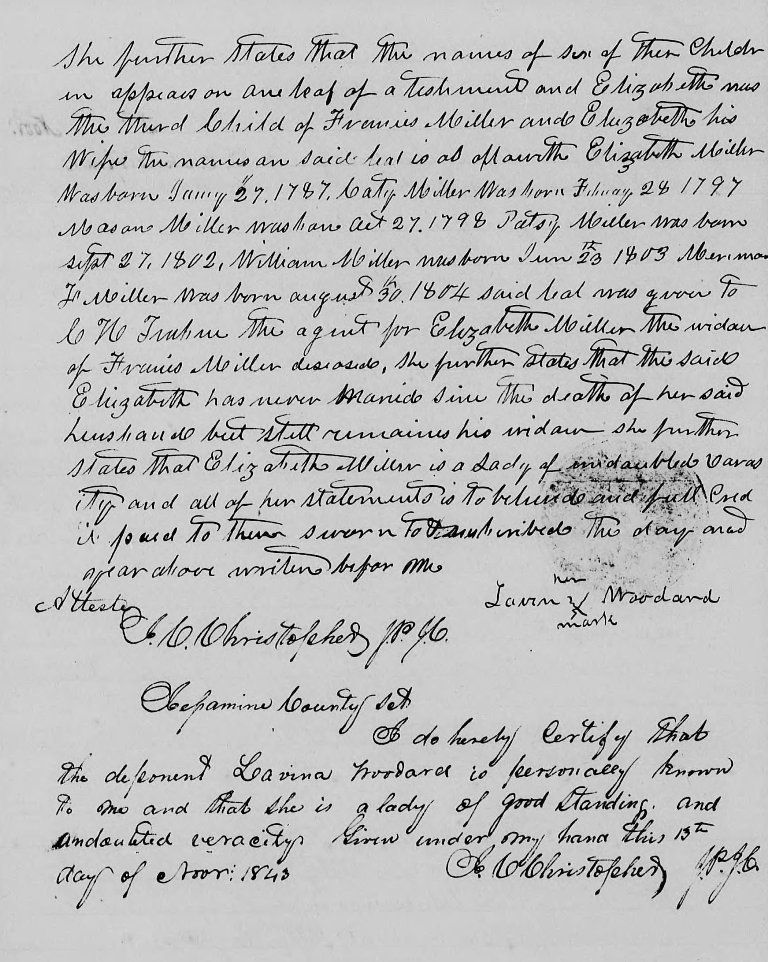 She further States that the names of six of ther Childr
in appears on one leaf of a testiment and Elizabeth was
the third Child of Francis Miller and Elizabeth his
Wife the names on said leaf is as ollowith Elizabeth Miller
Was born 27, 1787, Caty Miller Was born 28 1797
Mason Miller was born Oct 27. 1798 Patsy Miller was born
sept 27, 1802, William Miller was born Jun 23 1803
F Miller Was born august 30, 1804 said leaf was given to
C H the agent for Elizabeth Miller the widow
of Francis Miller deseased, She further States that the said
Elizabeth has never Maried Sine the death of her said
husband but still remaines his widow she further
States that Elizabeth Miller is a Lady of undoubted Varas
ity and all of her statements is to be and full Cred
it paid to them sworn to & subscribed the day and
year above writen befor Me
Atteste
her
Lavina X Woodard
mark
J. C. Christopher J.P. J.C.
Jessamine County Set
I do hereby Certify that
the deponent Lavina Woodard is personally known
to me and that she is a lady of good Standing. and
undouted veracity Given under my hand this 13th
day of Novr: 1843 J. C Christopher J.P. J.C.